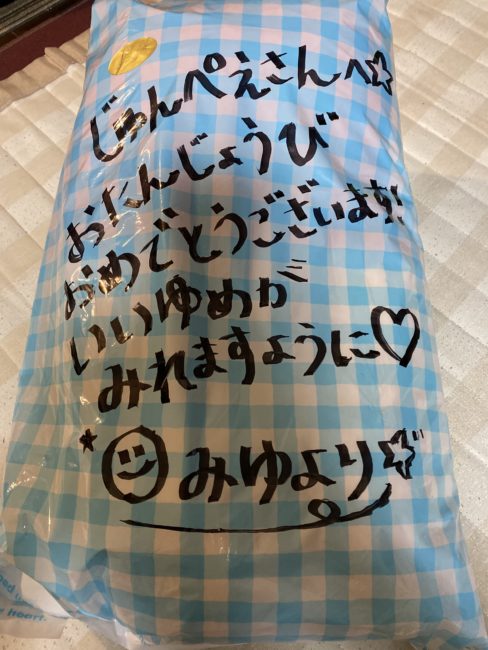 じゅんぺえさんへ☆
おたんじょうび
おめでとうございます!
いいゆめが
みれますように♡
みゆより☆
heart.